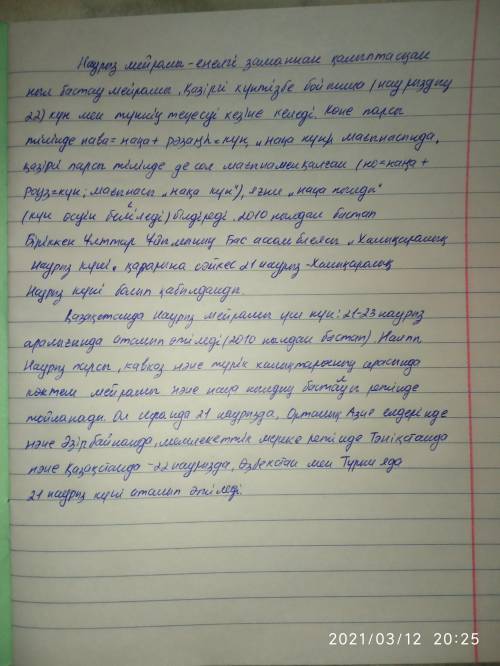 Наурыз мейрамы - ежелгі заманнан қалыптасқан
жыл бастау мейрамы. Қазіргі күнтізбе бойынша (наурыздың
22) күн мен түннің теңесуі кезіне келеді. Көне парсы
тілінде нава = жаңа + рәзаңһ = күн, „жаңа күн" мағынасында,
қазіргі парсы тілінде де сол мағынамен қалған (но = жаңа +
роуз = күн; мағынасы „жаңа күн"), яғни „жаңа жылды"
(күн өсуін белгіледі) білдіреді. 2010 жылдан бастап
Біріккен Ұлттар Ұйымының Бас ассамблеясы „Халықаралық
Наурыз күні" қарарына сәйкес 21 наурыз - Халықаралық
Наурыз күні болып қабылданды.
Қазақстанда Наурыз мейрамы үш күн: 21-23 наурыз
аралығында аталып өтіледі (2010 жылдан бастап). Жалпы
Наурыз парсы, кавказ және түрік халықтарының арасында
көктем мейрамы және жаңа жылдың басталуы ретінде
тойланады. Ол Иранда 21 наурызда, Орталық Азия елдерінде
және Әзірбайжанда, мемлекеттік мереке ретінде Тәжікстанда
және Қазақстанда - 22 наурызда, Өзбекстан мен Түркияда
21 наурыз күні аталып өтіледі.
2021/03/12 20:25